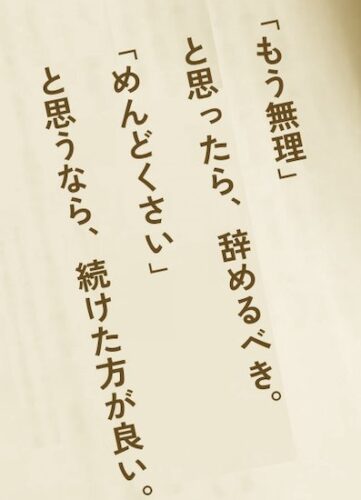 「もう無理」
と思ったら、辞めるべき。
「めんどくさい」
と思うなら、続けた方が良い。